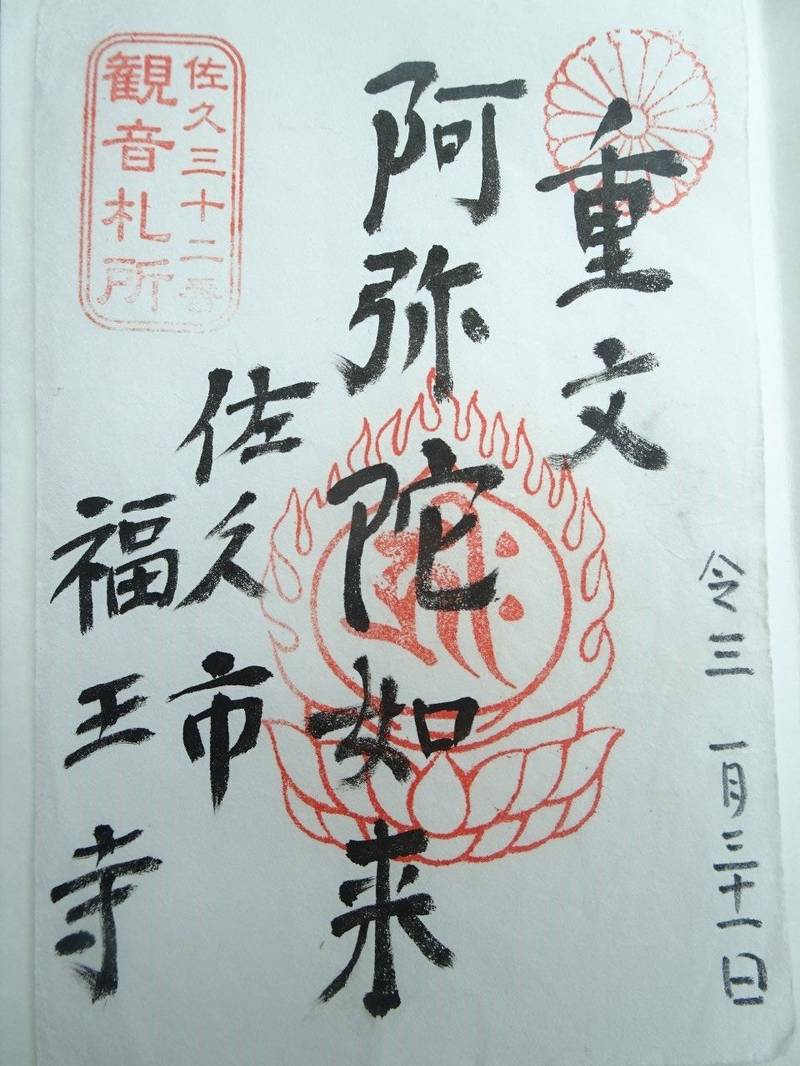 令三 一月三十一日
重文
阿弥陀如来
佐久市
福王寺
佐久三十二番
観音札所